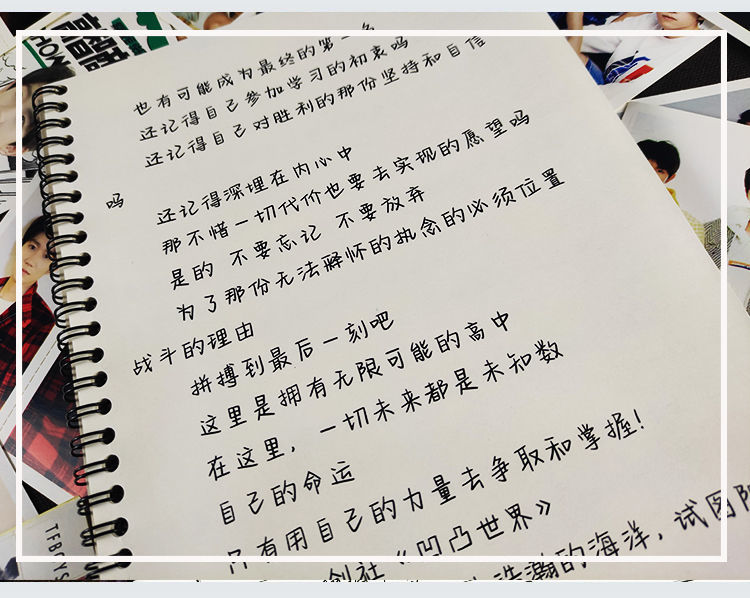 也有可能成为最终的第一名
还记得自己参加学习的初衷吗
还记得自己对胜利的那份坚持和自信
吗
还记得深埋在内心中
那不惜一切代价也要去实现的愿望吗
是的 不要忘记 不要放弃
为了那份无法释怀的执念的必须位置
战斗的理由
拼搏到最后一刻吧
这里是拥有无限可能的高中
在这里，一切未来都是未知数
自己的命运
只有用自己的力量去争取和掌握！
创社《凹凸世界》
浩瀚的海洋，试图
TFBOYS